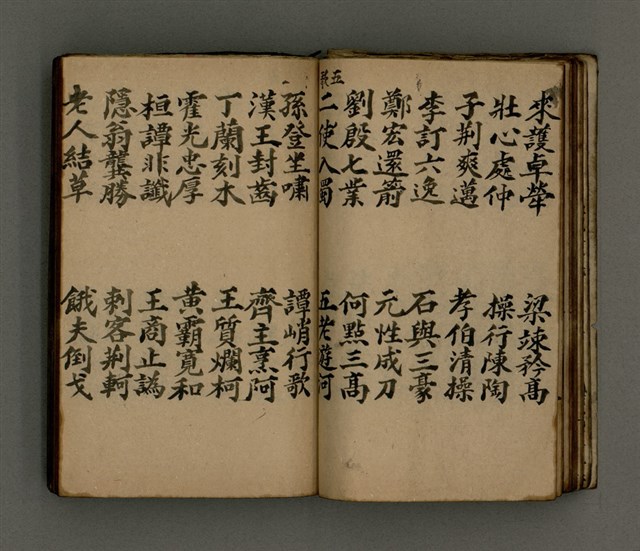 來護卓犖　梁竦矜高
壯心處仲　操行陳陶
子荊爽邁　孝伯清操
李訂六逸　石與三豪
鄭宏還箭　元性成刀
劉殷七業　何點三高
五
二使入蜀　五老遊河
孫登坐嘯　譚峭行歌
漢王封齒　齊主烹阿
丁蘭刻木　王質爛柯
霍光忠厚　黃霸寬和
桓譚非讖　王商止譌
隱翁龔勝　刺客荊軻
老人結草　餓夫倒戈